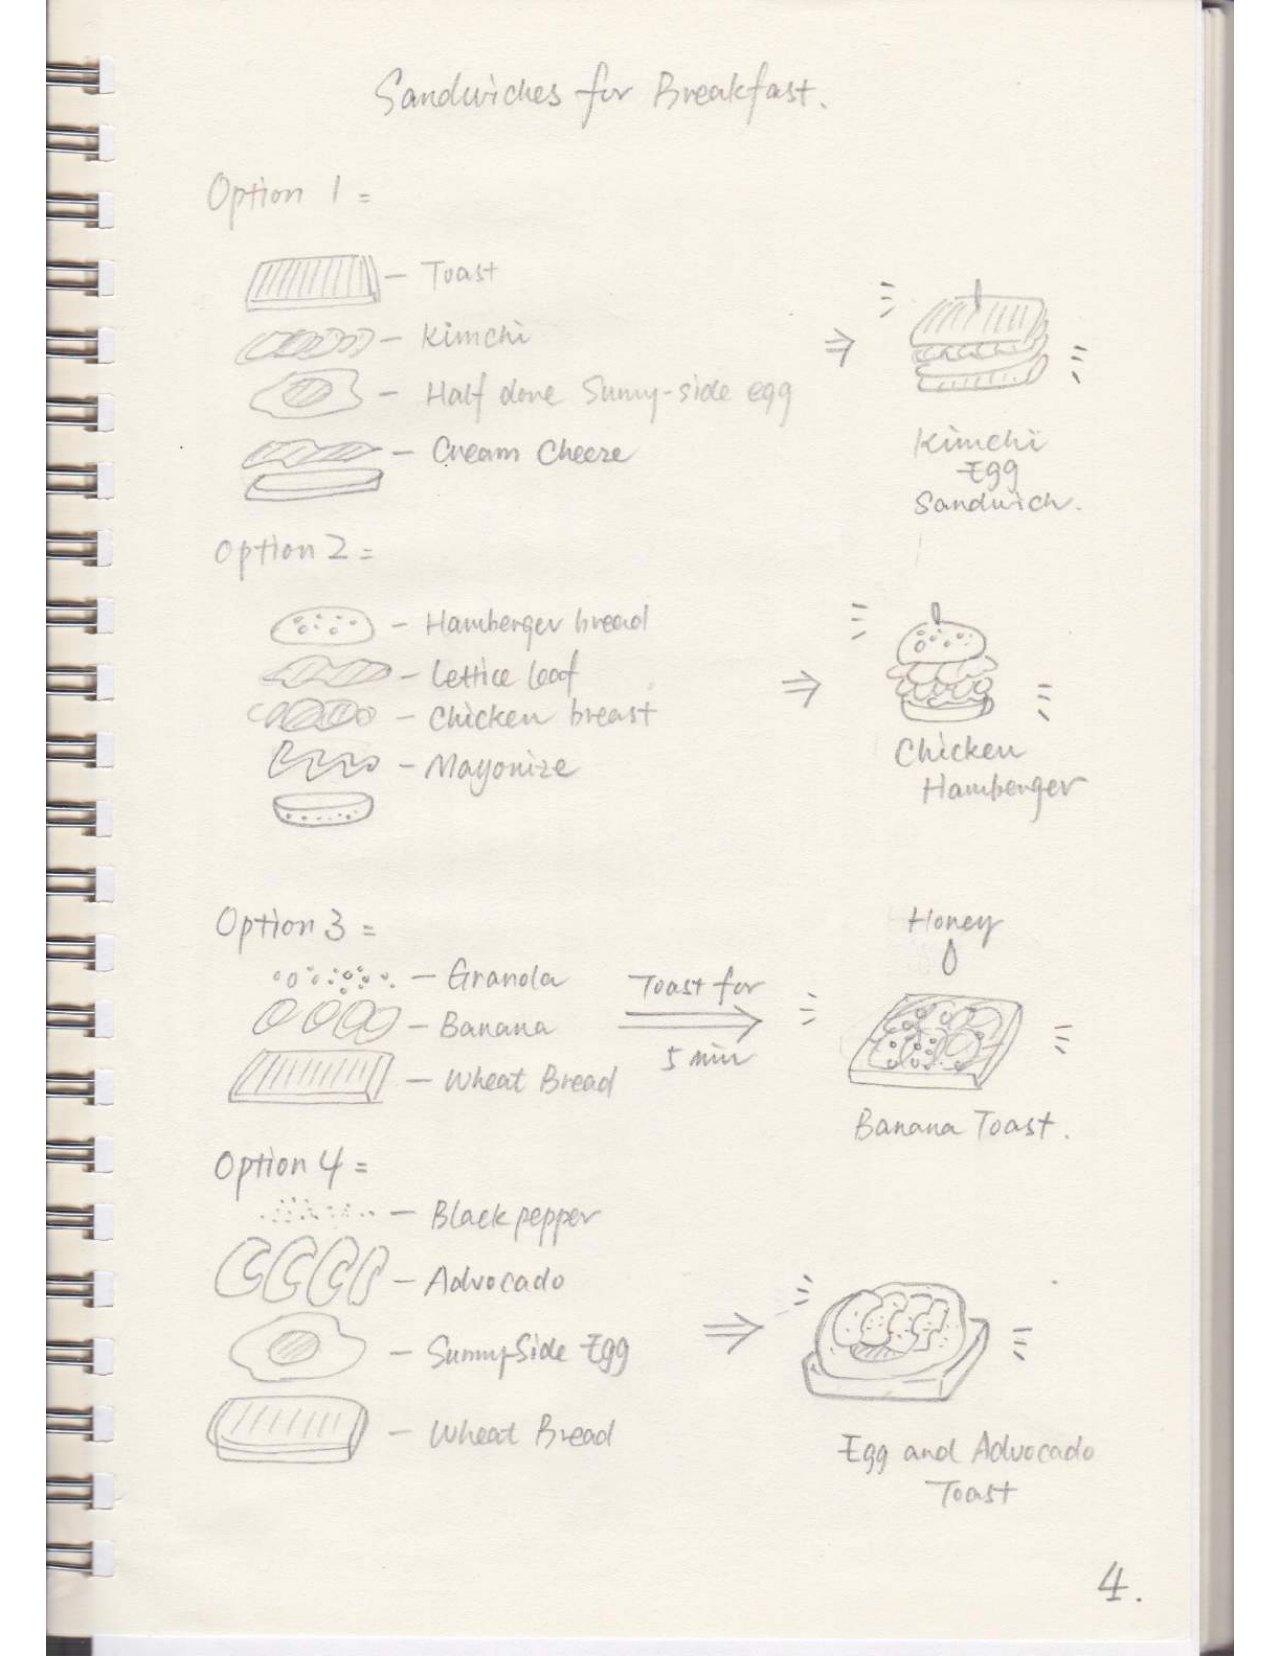 Sandwiches for Breakfast.
Option 1 =
- Toast
- Kimchi
- Half done Sunny-side egg
- Cream Cheeze
⇒
Kimchi
Egg
Sandwich.
Option 2 =
- Hamberger bread
- Lettice leaf
- Chicken breast
- Mayonize
⇒
Chicken
Hamberger
Option 3 =
- Granola
- Banana
- Wheat Bread
Toast for
5 min
Honey
Banana Toast.
Option 4 =
- Black pepper
- Advocado
- Sunny-Side Egg
- Wheat Bread
⇒
Egg and Advocado
Toast
4.